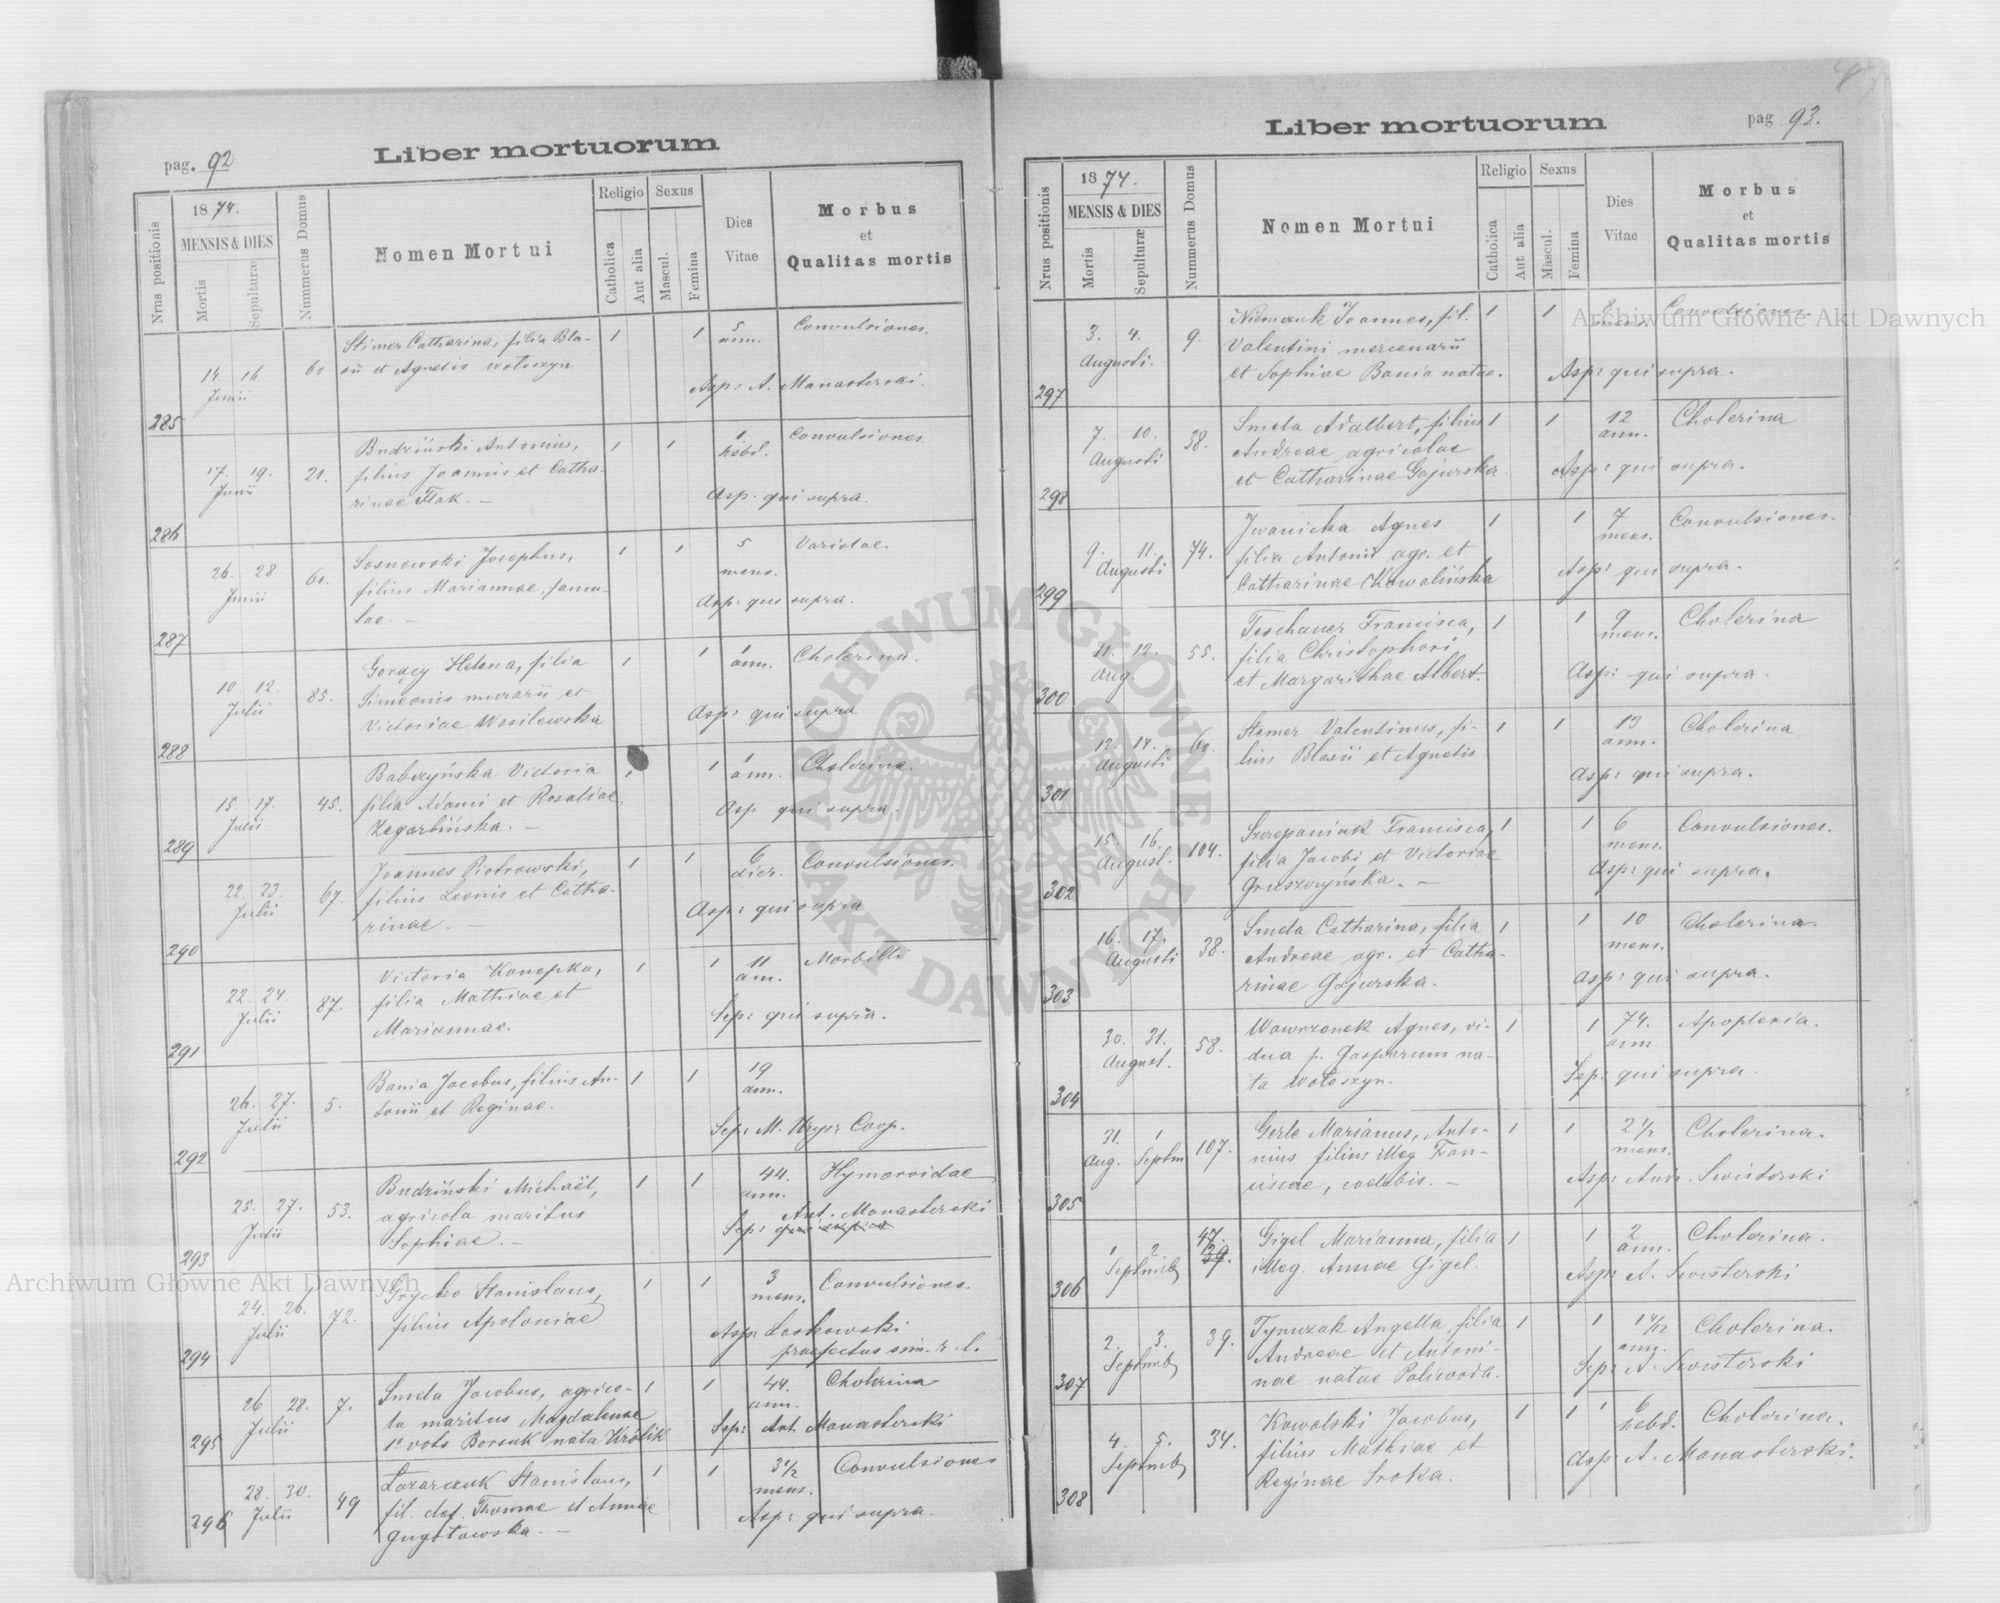 pag. 92
Liber mortuorum
Nrus positionis
1874.
MENSIS & DIES
Mortis
Sepulturæ
Nummerus Domus
Nomen Mortui
Religio
Catholica
Aut alia
Sexus
Mascul.
Femina
Dies
Vitae
Morbus
et
Qualitas mortis
285 14. 16 Junii 60
Stimer Catharina, filia Bla-
sii et Agnetis Wołoszyn
1 1 5 ann. Convulsiones.
Asp: A. Manasterski.
286 17. 19. Junii 21.
Budziński Antonius,
filius Joannis et Catha-
rinae Ftak. —
1 1 1 hebd. Convulsiones
Asp. qui supra.
287 26. 28 Junii 60.
Sosnowski Josephus,
filius Mariannae famu-
lae. —
1 1 5 mens. Variolae.
Asp: qui supra.
288 10. 12. Julii 85.
Gorący Helena, filia
Simeonis murarii et
Victoriae Wasilewska
1 1 1 ann. Cholerina.
Asp: qui supra
289 15. 17. Julii 45.
Babczyńska Victoria
filia Adami et Rosaliae
Zagarlińska. —
1 1 1 ann. Cholerina.
Asp. qui supra.
290 22. 23. Julii 67.
Joannes Piotrowski,
filius Leonis et Catha-
rinae. —
1 1 6 dier. Convulsiones.
Asp: qui supra
291 22. 24. Julii 87.
Victoria Konopka,
filia Mathiae et
Mariannae.
1 1 11 ann. Morbilli
Sep: qui supra.
292 26. 27. Julii 5.
Bania Jacobus, filius An-
tonii et Reginae.
1 1 19 ann.
Sep: M. Coop.
293 25. 27. Julii 53.
Budziński Michaël,
agricola maritus
Sophiae. —
1 1 44. ann. Hymoroidae
Ant. Monasterski
Sep: qui supra
294 24. 26. Julii 72.
Grycko Stanislaus,
filius Apoloniae
1 1 3 mens. Convulsiones.
Asp: Laskowski
praefectus sem. r. l.
295 26 28. Julii 7.
Smela Jacobus, agrico-
la maritus Magdalenae
1º voto Borsuk nata Królik
1 1 44. ann. Cholerina
Sep: Ant. Manasterski
296 28. 30. Julii 49
Lazarczuk Stanislaus,
fil. def. Thomae et Annae
Gugołowska. —
1 1 3 1/2 mens. Convulsiones
Asp: qui supra.
pag 93.
Liber mortuorum
Nrus positionis
1874.
MENSIS & DIES
Mortis
Sepulturæ
Nummerus Domus
Nomen Mortui
Religio
Catholica
Aut alia
Sexus
Mascul.
Femina
Dies
Vitae
Morbus
et
Qualitas mortis
297 3. 4. Augusti. 9.
Niemczuk Joannes, fil.
Valentini mercenarii
et Sophiae Bania natae.
1 1 8 mens. Convulsiones.
Asp: qui supra.
298 7. 10. Augusti 38.
Smela Adalbert, filius
Andreae agricolae
et Catharinae Gajurska
1 1 12 ann. Cholerina
Asp: qui supra.
299 9. 11. Augusti 74.
Iwanicka Agnes
filia Antonii agr. et
Catharinae Kowalińska
1 1 7 mens. Convulsiones.
Asp: qui supra.
300 11. 12. Aug. 55.
Teschauer Francisca,
filia Christophori
et Margarithae Albert.
1 1 9 mens. Cholerina
Asp: qui supra.
301 12. 14. Augusti 60.
Stemer Valentinus, fi-
lius Blasii et Agnetis
1 1 13 ann. Cholerina
Asp: qui supra.
302 15. 16. August. 104.
Szczepaniak Francisca,
filia Jacobi et Victoriae
Gruszczyńska. —
1 1 6 mens. Convulsiones.
Asp: qui supra.
303 16. 17. Augusti 38.
Smela Catharina, filia
Andreae agr. et Catha-
rinae Gajurska.
1 1 10 mens. Cholerina.
Asp: qui supra.
304 30. 31. August. 58.
Wawrzonek Agnes, vi-
dua p. Gasparum na-
ta Wołoszyn.
1 1 74. ann Apoplexia.
Sep: qui supra.
305 31. Aug. 1 Septm 107.
Gerle Marianus, Anto-
nius filius illeg Fran-
ciscae, coelebis. —
1 1 2 1/2 mens. Cholerina.
Asp: Andr. Swisterski
306 1 2 Septmb 47. 39.
Gigel Marianna, filia
illeg. Annae Gigel.
1 1 2 ann. Cholerina.
Asp: A. Swisterski
307 2. 3. Septmb 39.
Tymczak Angella, filia
Andreae et Antoni-
nae natae Paliwoda.
1 1 1 4/12 ann. Cholerina.
Sep: A. Swisterski
308 4. 5. Septmb 34.
Kowalski Jacobus,
filius Mathiae et
Reginae Sroka.
1 1 6 hebd. Cholerina.
Asp A. Manasterski.
Archiwum Główne Akt Dawnych
Archiwum Główne Akt Dawnych
ARCHIWUM GŁÓWNE AKT DAWNYCH